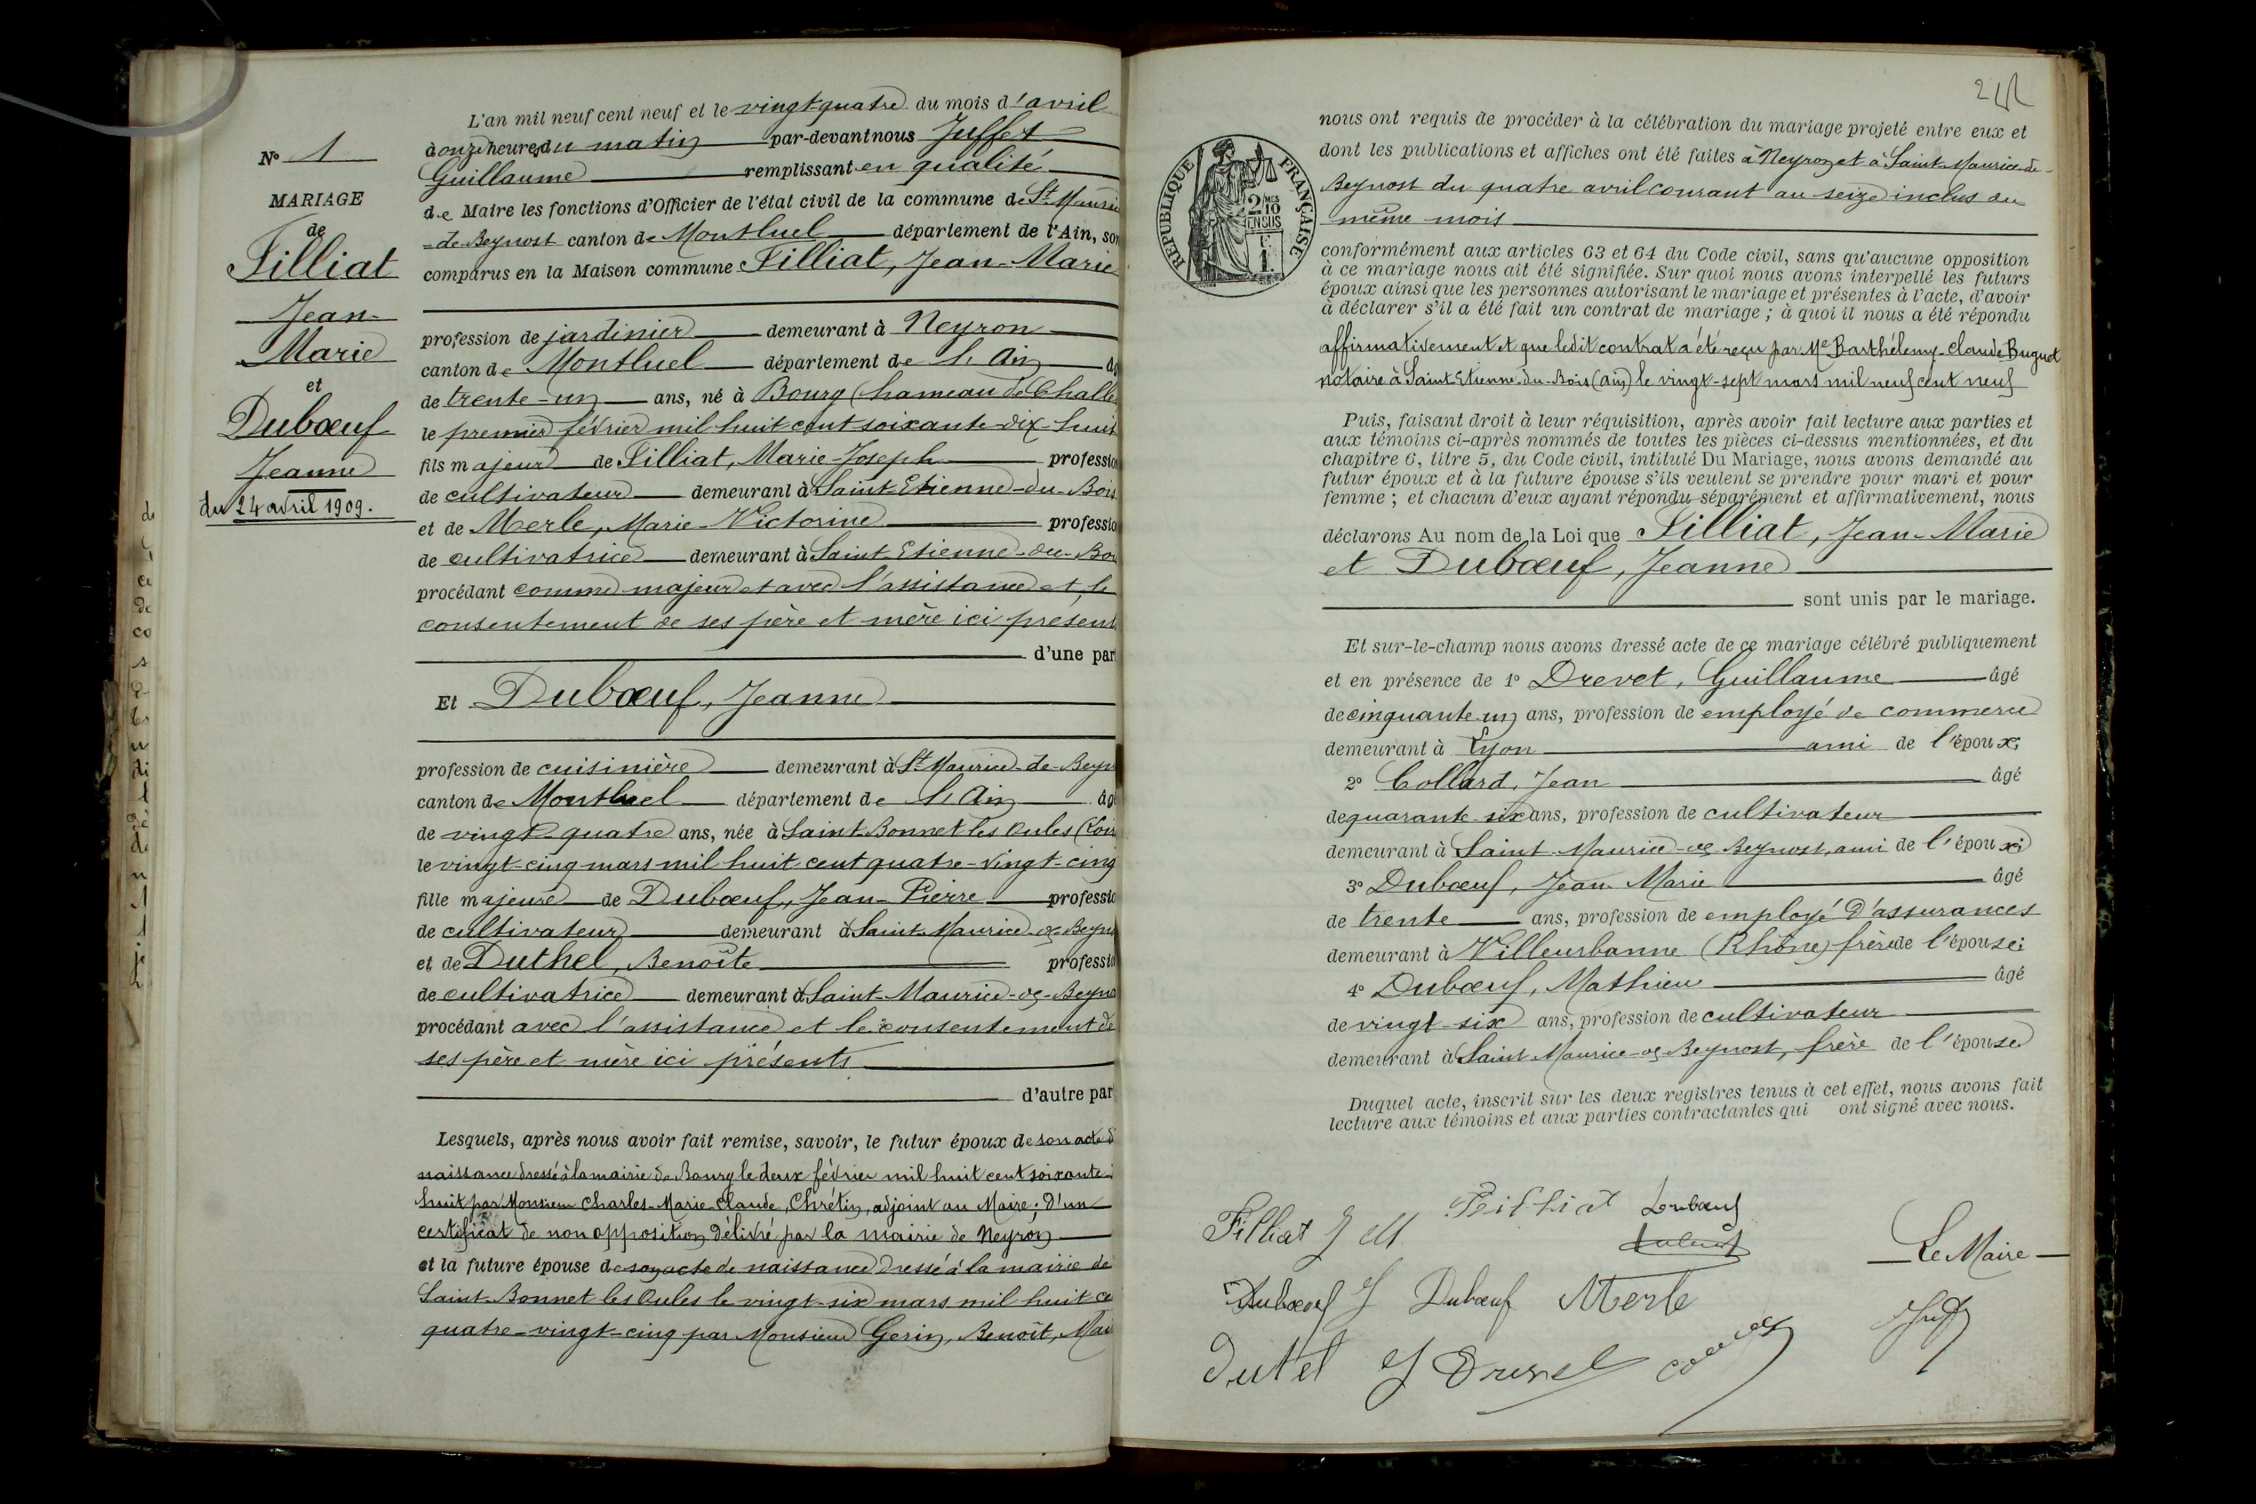 N° 1
MARIAGE
de
Filliat
Jean-
Marie
et
Dubœuf
Jeanne
du 24 avril 1909.
L'an mil neuf cent neuf et le vingt-quatre du mois d'avril
à onze heures du matin par-devant nous Juffet
Guillaume remplissant en qualité
de Maire les fonctions d'Officier de l'état civil de la commune de St Mauric
-de Beynost canton de Montluel département de l'Ain, son
comparus en la Maison commune Filliat, Jean-Marie
profession de jardinier demeurant à Neyron
canton de Montluel département de l'Ain âg
de trente-un ans, né à Bourg (hameau de Challe
le premier février mil huit cent soixante-dix-huit
fils majeur de Filliat, Marie-Joseph professio
de cultivateur demeurant à Saint-Etienne-du-Bois
et de Merle, Marie-Victorine professio
de cultivatrice demeurant à Saint-Etienne-du-Boi
procédant comme majeur et avec l'assistance et le
consentement de ses père et mère ici présent
d'une par
Et Dubœuf, Jeanne
profession de cuisinière demeurant à St Maurice-de-Beyn
canton de Montluel département de l'Ain âg
de vingt-quatre ans, née à Saint-Bonnet les Oules (Loir
le vingt-cinq mars mil huit cent quatre-vingt-cinq
fille majeure de Dubœuf, Jean-Pierre professio
de cultivateur demeurant à Saint-Maurice-de-Beyn
et de Duthel, Benoîte professio
de cultivatrice demeurant à Saint-Maurice-de-Beyno
procédant avec l'assistance et le consentement de
ses père et mère ici présents
d'autre par
Lesquels, après nous avoir fait remise, savoir, le futur époux de son acte d
naissance dressé à la mairie de Bourg le deux février mil huit cent soixante
huit par Monsieur Charles-Marie-Claude, Chrétin, adjoint au Maire; D'un
certificat de non opposition délivré par la mairie de Neyron
et la future épouse de son acte de naissance dressé à la mairie de
Saint-Bonnet les Oules le vingt-six mars mil huit ce
quatre-vingt-cinq par Monsieur Gerin, Benoît, Mai
RÉPUBLIQUE FRANÇAISE
2/10
EN SUS
nous ont requis de procéder à la célébration du mariage projeté entre eux et
dont les publications et affiches ont été faites à Neyron et à Saint-Maurice-de-
Beynost du quatre avril courant au seize inclus du
même mois
conformément aux articles 63 et 64 du Code civil, sans qu'aucune opposition
à ce mariage nous ait été signifiée. Sur quoi nous avons interpellé les futurs
époux ainsi que les personnes autorisant le mariage et présentes à l'acte, d'avoir
à déclarer s'il a été fait un contrat de mariage ; à quoi il nous a été répondu
affirmativement et que ledit contrat a été reçu par Me Barthélemy-Claude Buguet
notaire à Saint-Etienne-du-Bois (Ain) le vingt-sept mars mil neuf cent neuf
Puis, faisant droit à leur réquisition, après avoir fait lecture aux parties et
aux témoins ci-après nommés de toutes les pièces ci-dessus mentionnées, et du
chapitre 6, titre 5, du Code civil, intitulé Du Mariage, nous avons demandé au
futur époux et à la future épouse s'ils veulent se prendre pour mari et pour
femme ; et chacun d'eux ayant répondu séparément et affirmativement, nous
déclarons Au nom de la Loi que Filliat, Jean-Marie
et Dubœuf, Jeanne
sont unis par le mariage.
Et sur-le-champ nous avons dressé acte de ce mariage célébré publiquement
et en présence de 1° Drevet, Guillaume âgé
de cinquante-un ans, profession de employé de commerce
demeurant à Lyon ami de l'époux;
2° Collard, Jean âgé
de quarante-six ans, profession de cultivateur
demeurant à Saint-Maurice-de Beynost, ami de l'époux;
3° Dubœuf, Jean Marie âgé
de trente ans, profession de employé d'assurances
demeurant à Villeurbanne (Rhône) frère de l'épouse;
4° Dubœuf, Mathieu âgé
de vingt-six ans, profession de cultivateur
demeurant à Saint-Maurice-de Beynost, frère de l'épouse
Duquel acte, inscrit sur les deux registres tenus à cet effet, nous avons fait
lecture aux témoins et aux parties contractantes qui ont signé avec nous.
Filliat J M Filliat Dubœuf
Le Maire
Dubœuf J Dubœuf Merle
Dutel J Drevet